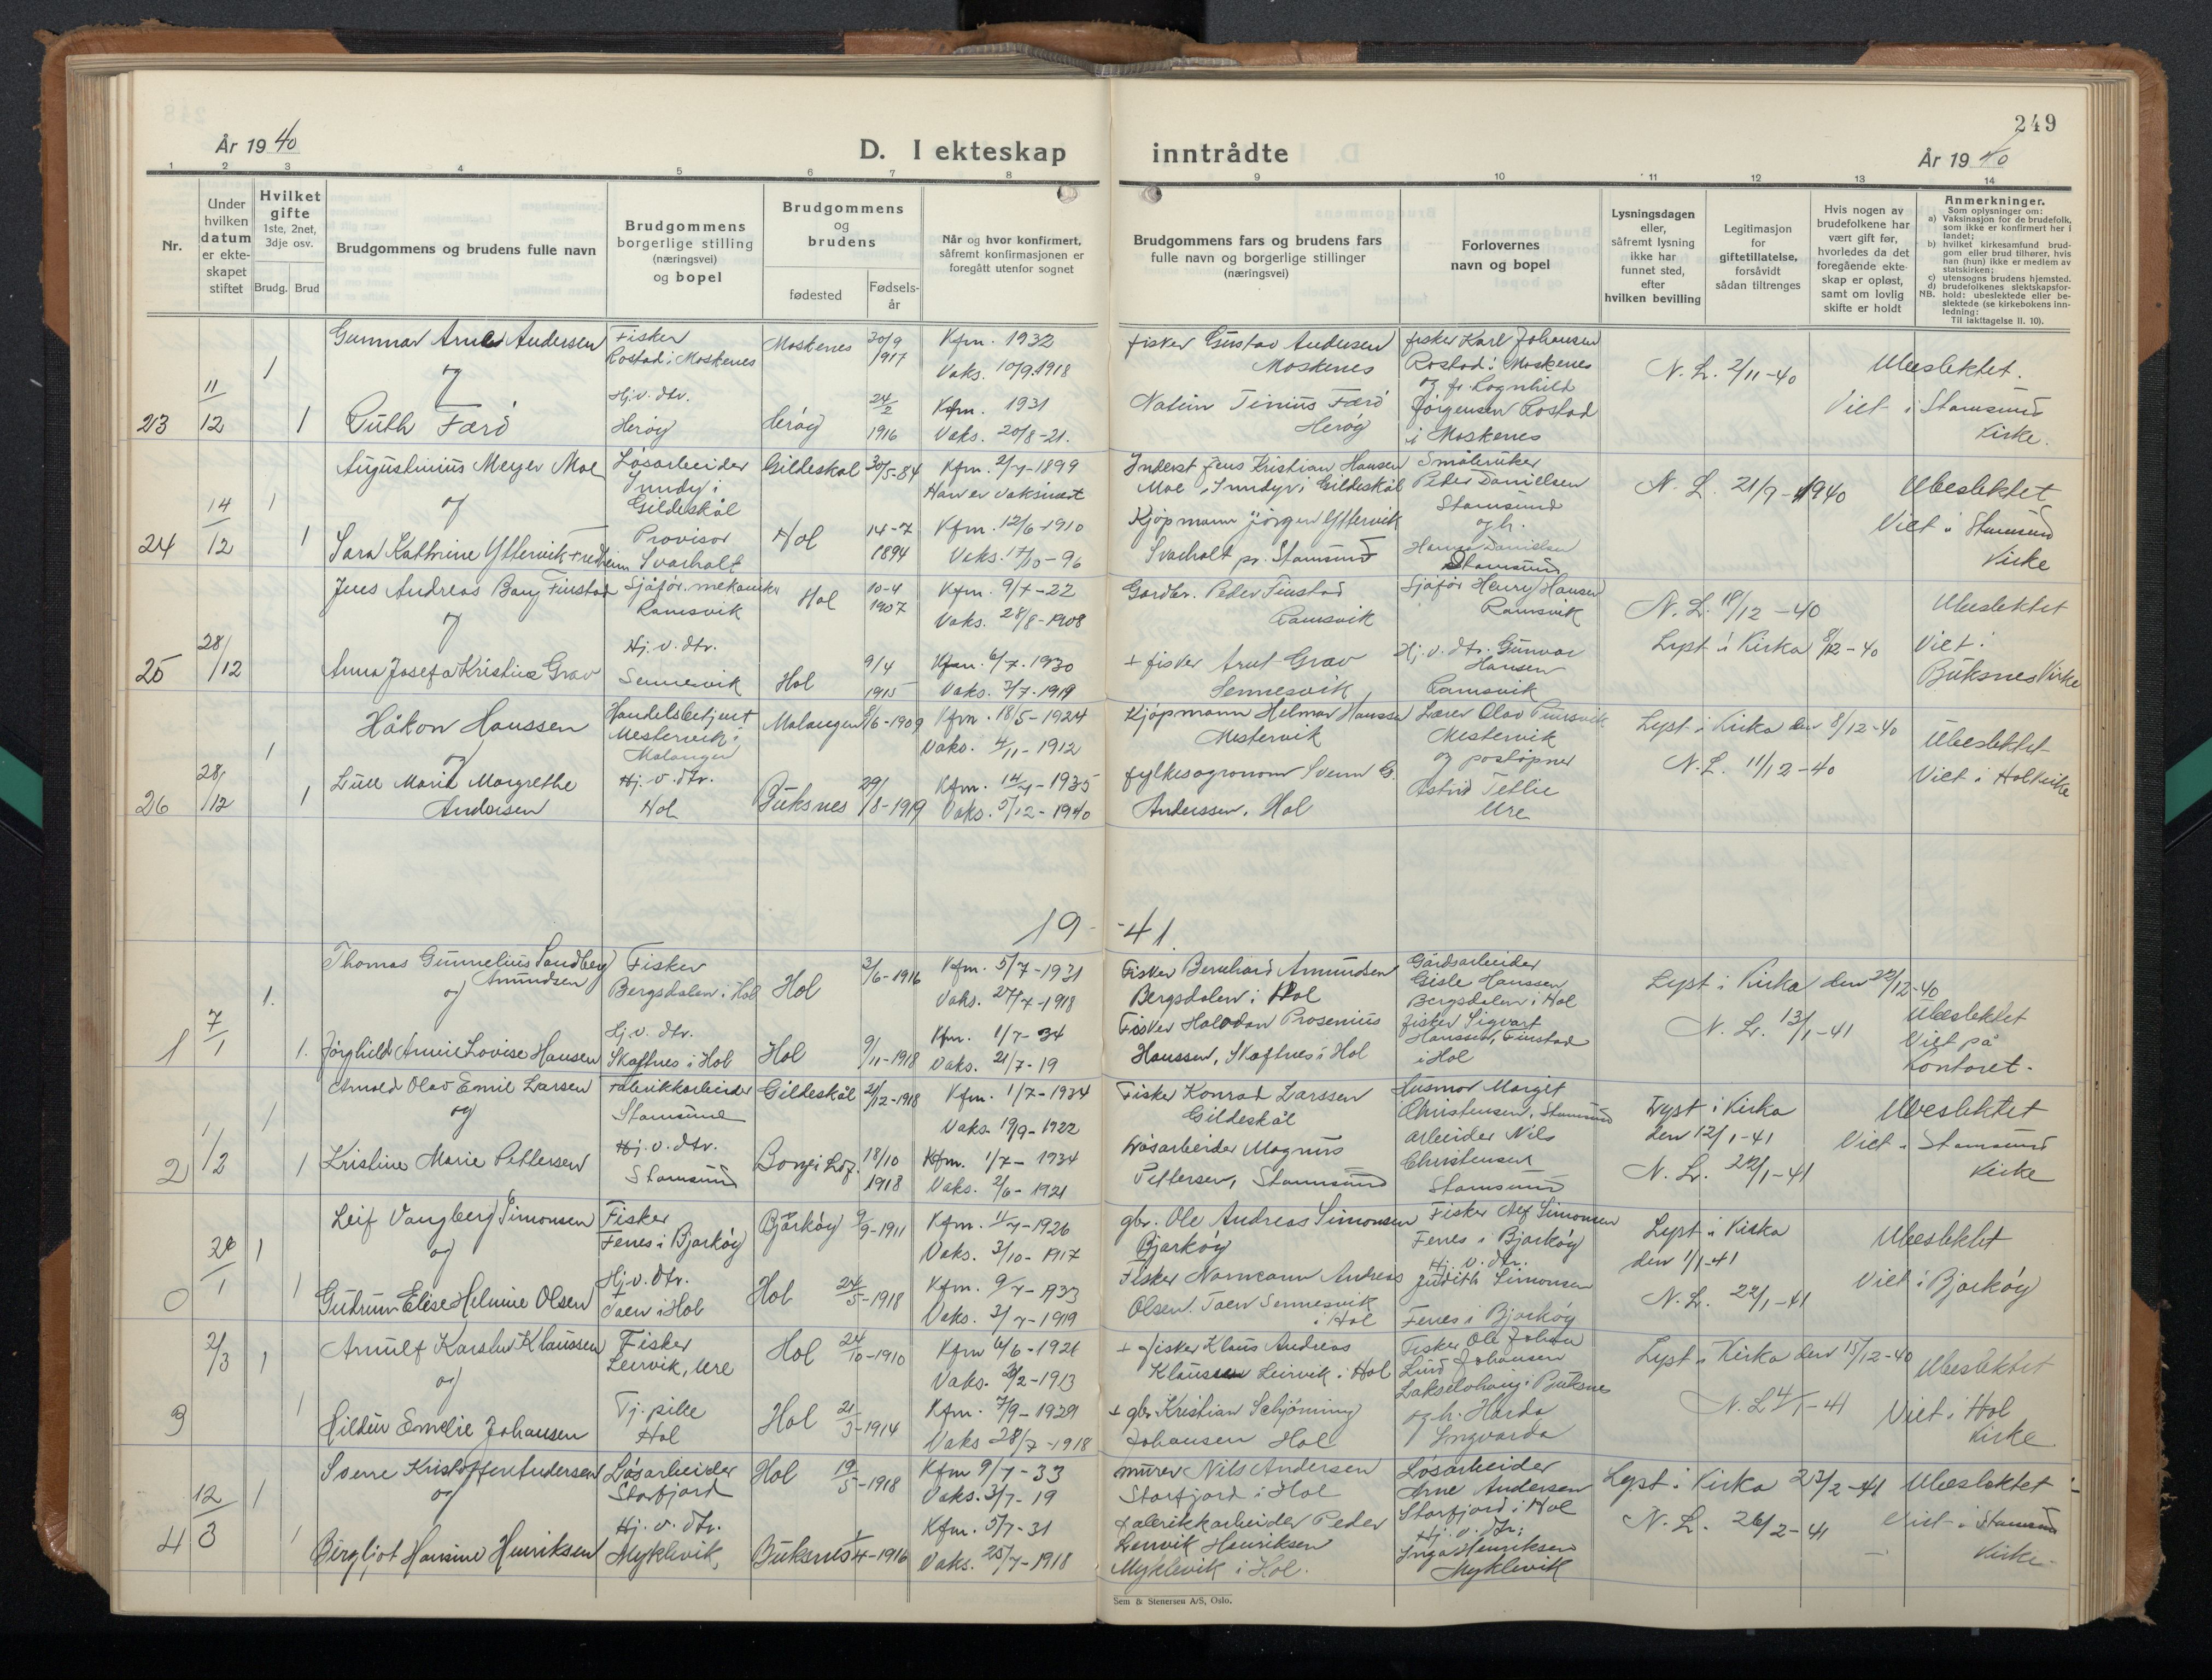 249
År 1940
D. I ekteskap inntrådte
År 1940
1 2 3 4 5 6 7 8 9 10 11 12 13 14
Nr.
Under hvilken datum er ekteskapet stiftet
Hvilket gifte 1ste, 2net, 3dje osv.
Brudg. Brud
Brudgommens og brudens fulle navn
Brudgommens borgerlige stilling (næringsvei) og bopel
Brudgommens og brudens
fødested
Fødsels-år
Når og hvor konfirmert, såfremt konfirmasjonen er foregått utenfor sognet
Brudgommens fars og brudens fars fulle navn og borgerlige stillinger (næringsvei)
Forlovernes navn og bopel
Lysningsdagen eller, såfremt lysning ikke har funnet sted, efter hvilken bevilling
Legitimasjon for giftetillatelse, forsåvidt sådan tiltrenges
Hvis nogen av brudefolkene har vært gift før, hvorledes da det foregående ekteskap er opløst, samt om lovlig skifte er holdt
Anmerkninger.
Som oplysninger om:
a) Vaksinasjon for de brudefolk, som ikke er konfirmert her i landet;
b) hvilket kirkesamfund brudgom eller brud tilhører, hvis han (hun) ikke er medlem av statskirken;
c) utensogns brudens hjemsted.
d) brudefolkenes slektskapsforhold: ubeslektede eller beslektede (se kirkebokens innledning:
NB.
Til iakttagelse II. 10).
23 11/12 1 1
Gunnar Arne Andersen
og
Ruth Færö
Fisker
Rostad i Moskenes
Hj.v. dtr.
Herøy
Moskenes 30/9 1917
Herøy 24/2 1916
Kfm. 1932
Vaks. 10/9.1918
Kfm. 1931
Vaks. 20/8-21.
fisker Gustav Andersen
Moskenes
Tinius Færö
Herøy
fisker Karl Johansen
Rostad i Moskenes
og fr. Ragnhild
Jørgensen Rostad
i Moskenes
N. L. 2/11-40
Ubeslektet.
Viet i Stamsund
Kirke.
24 14/12 1 1
Augustinius Meyer Moe
og
Sara Kathrine Yttervik
Løsarbeider
i
Gildeskål
Provisor
Svarholt
Gildeskål 30/5-84
Hol 14-7 1894
Kfm. 2/7-1899
Han er vaksinert
Kfm. 12/6-1910
Vaks. 17/10-96
Inderst Jens Kristian Hansen
Moe, i Gildeskål
Kjøpmann Jörgen Yttervik
Svarholt pr. Stamsund
Småbruker
Peder Danielsen
Stamsund
og h.
Hanna Danielsen
Stamsund
N. L. 21/9-1940
Ubeslektet
Viet i Stamsund
Kirke
25 28/12
Jens Andreas Bang Finstad
og
Anna Josefa Kristine Grav
Sjåfør. mekaniker
Ramsvik
Hj. v. dtr.
Sennesvik
Hol 10-4 1907
Hol 9/4 1915
Kfm. 9/7-22
Vaks. 28/8-1908
Kfm. 6/7.1930
Vaks. 3/7-1919
Gardbr. Peder Finstad
Ramsvik
+ fisker Arnt Grav
Sennesvik
Sjåfør Henry Hansen
Ramsvik
Hj. v. dtr. Gunvor
Hansen
Ramsvik
N. L. 18/12-40
Lyst i Kirka 8/12-40
Ubeslektet
Viet i
Buksnes Kirke
26 28/12 1 1
Håkon Hanssen
og
Lull Marie Margrethe
Andersen
Handelsbetjent
Mestervik i
Malangen
Hj. v. dtr.
Hol
Malangen 8/6-1909
Buksnes 29/8-1919
Kfm. 18/5-1924
Vaks. 4/11-1912
Kfm. 14/7-1935
Vaks. 5/12-1940
Kjøpmann Helmar Hanssen
Mestervik
fylkesagronom Svenn G.
Anderssen, Hol
Lærer Olav
Mestervik
og postöpner
Astrid Tetlie
Ure
Lyst i Kirka den 8/12-40
N. L. 11/12-40
Ubeslektet
Viet i Hol kirke
19-41
1 7/1 1. 1.
Thomas Gunnelius Sandberg
Amundsen
og
Jørghild Annie Lovise Hansen
Fisker
Bergsdalen i Hol
Hj.v. dtr.
Skaftnes i Hol
Hol 3/6-1916
Hol 9/11-1918
Kfm. 5/7-1931
Vaks. 27/7-1918
Kfm. 1/7-34
Vaks. 21/7-19
Fisker Bernhard Amundsen
Bergsdalen i Hol
Fisker Halvdan Prosenius
Hanssen, Skaftnes i Hol
Gårdsarbeider
Gisle Hanssen
Bergsdalen i Hol
fisker Sigvart
Hanssen, Finstad
i Hol
Lyst i Kirka den 22/12-40
N. L. 13/1-41
Ubeslektet
Viet på
Kontoret.
2 1/2 1 1
Arnold Olav Emil Larsen
og
Kristine Marie Pettersen
Fabrikkarbeider
Stamsund
Hj. v. dtr.
Stamsund
Gildeskål 21/12-1918
18/10 1918
Kfm. 1/7-1934
Vaks. 19/9-1922
Kfm. 1/7-1934
Vaks. 2/6-1921
Fisker Konrad Larssen
Gildeskål
Løsarbeider Magnus
Pettersen, Stamsund
Husmor Margit
Christensen, Stamsund
arbeider Nils
Christensen
Stamsund
Lyst i Kirka
den 12/1-41
N. L. 22/1-41
Ubeslektet
Viet i Stamsund
Kirke
0 1 1
Leif Vangberg Simonsen
og
Gudrun Elise Helmine Olsen
Fisker
Fenes i Bjarkøy
Hj.v. dtr.
Taen i Hol
Bjarkøy 9/9-1911
Hol 24/5-1918
Kfm. 11/7-1926
Vaks. 3/10-1917
Kfm. 9/7-1933
Vaks. 3/7-1919
gbr. Ole Andreas Simonsen
Bjarkøy
Fisker Normann Andreas
Olsen. Taen Sennesvik
i Hol
Fisker Alf Simonsen
Fenes i Bjarkøy
Hj. v. dtr.
Judith Simonsen
Fenes i Bjarkøy
Lyst i Kirka
den 1/1-41
N. L. 22/1-41
Ubeslektet
Viet i Bjarkøy
3 2/3 1 1
Arnulf Karslev Klaussen
og
Hildur Emelie Johansen
Fisker
Leirvik, Ure
Tj. pike
Hol
Hol 24/10-1910
Hol 21/3-1914
Kfm 6/6-1926
Vaks. 2-1913
Kfm. 7/9-1929
Vaks 28/7-1918
+ fisker Klaus Andreas
Klaussen Leirvik i Hol
+ gbr. Kristian Schjönning
Johansen Hol
Fisker Ole Johan
Lund Johansen
i Buksnes
og h. Harda
Ingvarda
Lyst i Kirka den 15/12-40
N. L 4/1-41
Ubeslektet
Viet i Hol
Kirke
4 12/3 1 1
Sverre Kristoffer Andersen
og
Bergljot Hansine Henriksen
Løsarbeider
Storfjord
Hj. v. dtr.
Myklevik
Hol 19/5-1918
Buksnes 1/4-1916
Kfm 9/7-33
Vaks. 3/7-19
Kfm. 5/7-31
Vaks. 25/7-1918
murer Nils Andersen
Storfjord i Hol
Fabrikkarbeider Peder
Lervik Henriksen
Myklevik i Hol.
Løsarbeider
Arne Andersen
Storfjord i Hol
Hj. v. dtr.
Inga Henriksen
Myklevik
Lyst i Kirka 23/2-41
N. L. 26/2-41
Ubeslektet
Viet i Stamsund
Kirke
Sem & Stenersen A/S, Oslo.